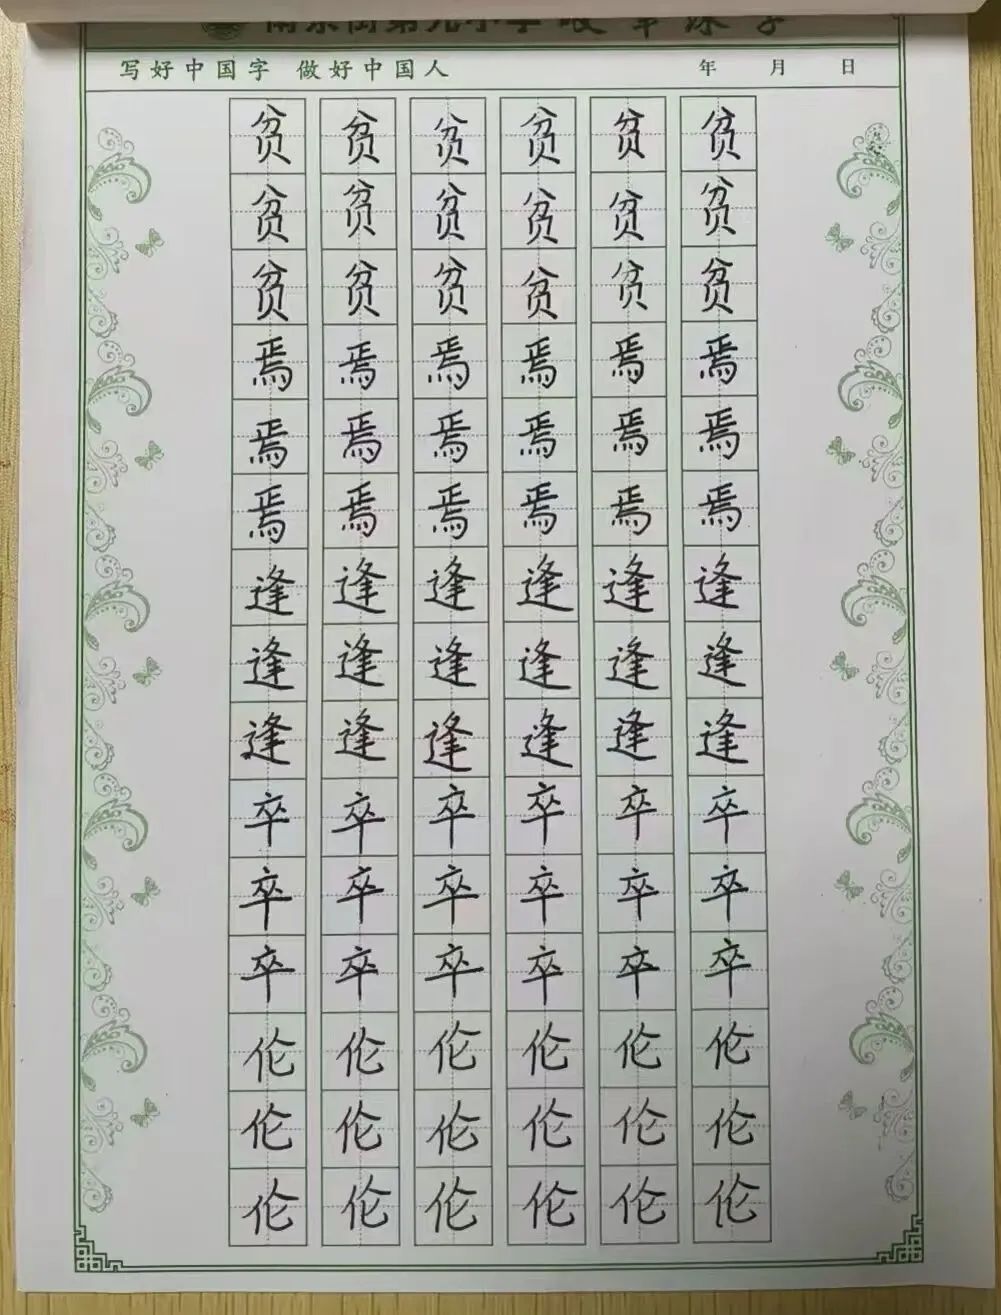 南京街第九小学
写好中国字 做好中国人 年 月 日
贫 贫 贫 贫 贫 贫
贫 贫 贫 贫 贫 贫
贫 贫 贫 贫 贫 贫
焉 焉 焉 焉 焉 焉
焉 焉 焉 焉 焉 焉
焉 焉 焉 焉 焉 焉
逢 逢 逢 逢 逢 逢
逢 逢 逢 逢 逢 逢
逢 逢 逢 逢 逢 逢
卒 卒 卒 卒 卒 卒
卒 卒 卒 卒 卒 卒
卒 卒 卒 卒 卒 卒
伦 伦 伦 伦 伦 伦
伦 伦 伦 伦 伦 伦
伦 伦 伦 伦 伦 伦